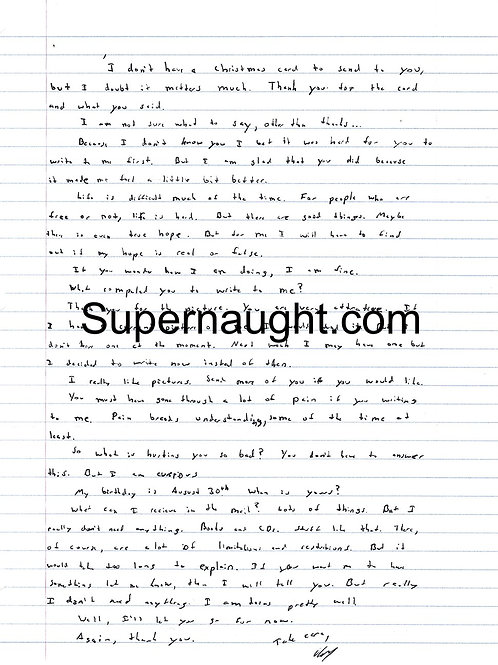 I don't have a christmas card to send to you,
but I doubt it matters much. Thank you for the card
and what you said.
I am not sure what to say, other than thanks...
Because I don't know you I bet it was hard for you to
write to me first. But I am glad that you did because
it made me feel a little bit better.
Life is difficult much of the time. For people who are
free or not, life is hard. But there are good things. Maybe
there is even true hope. But for me I will have to find
out if my hope is real or false.
If you wonder how I am doing, I am fine.
What compelled you to write to me?
Thank you for the picture. You are very attractive. If
Supernaught.com
I picture would
don't have one at the moment. Next week I may have one but
I decided to write now insted of then.
I really like pictures. Send more of you if you would like.
You must have gone through a lot of pain if you writing
to me. Pain breeds understanding, some of the time at
least.
So what is hurting you so bad? You don't have to answer
this. But I am curious
My birthday is August 30th when is yours?
What can I recieve in the mail? Lots of things. But I
really don't need anything. Books and CDs. stuff like that. There,
of course, are a lot of limitations and restrictions. But it
would take too long to explain. If you want me to have
something let me know, then I will tell you. But really
I don't need anything. I am doing pretty well
Well, I'll let you go for now.
Again, thank you. Take care,